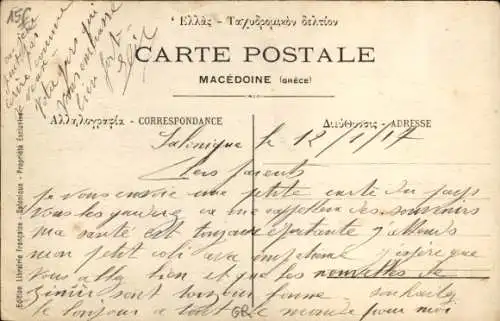 15€
Ἑλλὰς - Ταχυδρομικὸν δελτίον
CARTE POSTALE
MACÉDOINE (GRÈCE)
Ἀλληλογραφία - CORRESPONDANCE
Διεύθυνσις - ADRESSE
Edition Librairie Française - Salonique - Propriété Exclusive
votre fils qui
vous embrasse
bien fort
Salonique le 12/1/17
Chers parents
je vous envoie une petite carte du pays
vous les garderez ça me rappellera des souvenirs
ma santé est toujours j'attends
mon petit coli avec j'espère que
vous allez bien et que les nouvelles de
sont toujours bonne souhaitez
le bonjour a tout le monde pour moi
GR